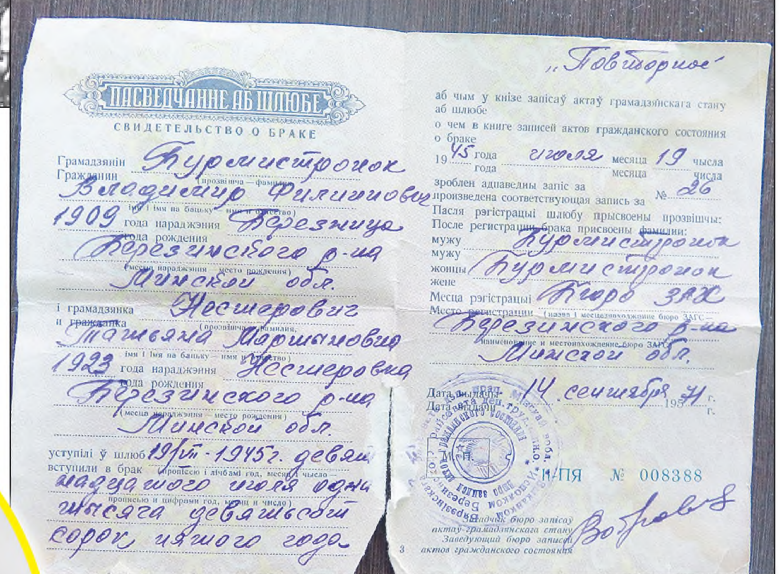 ПАСВЕДЧАННЕ АБ ШЛЮБЕ
СВИДЕТЕЛЬСТВО О БРАКЕ
Грамадзянін
Гражданин Бурмистронок
(прозвішча — фамилия)
Владимир Филиппович
(імя і імя па бацьку — имя и отчество)
1909 года нараджэння Березница
года рождения
Березинского р-на
(месца нараджэння — место рождения)
Минской обл.
і грамадзянка
и гражданка Нестерович
(прозвішча — фамилия)
Татьяна Мартыновна
(імя і імя па бацьку — имя и отчество)
1923 года нараджэння Нестеровка
года рождения
Березинского р-на
(месца нараджэння — место рождения)
Минской обл.
уступілі ў шлюб
вступили в брак 19/VII-1945г. девят
(прописью и цифрами год, месяц и число)
надцатого июля одна
тысяча девятьсот
сорок пятого года
„Повторное"
аб чым у кнізе запісаў актаў грамадзянскага стану
аб шлюбе
о чем в книге записей актов гражданского состояния
о браке
1945 года июля месяца 19 чысла
года месяца числа
зроблен адпаведны запіс за
произведена соответствующая запись за № 26
Пасля рэгістрацыі шлюбу прысвоены прозвішчы:
После регистрации брака присвоены фамилии:
мужу
мужу Бурмистронок
жонцы
жене Бурмистронок
Месца рэгістрацыі
Место регистрации Бюро ЗАГС
Березинского р-на
Минской обл.
Дата выдачы
Дата выдачи 14 сентября 1971 г.
М. П.
II-ПЯ № 008388
Загадчык бюро запісаў
актаў грамадзянскага стану
Заведующий бюро записей
актов гражданского состояния
3